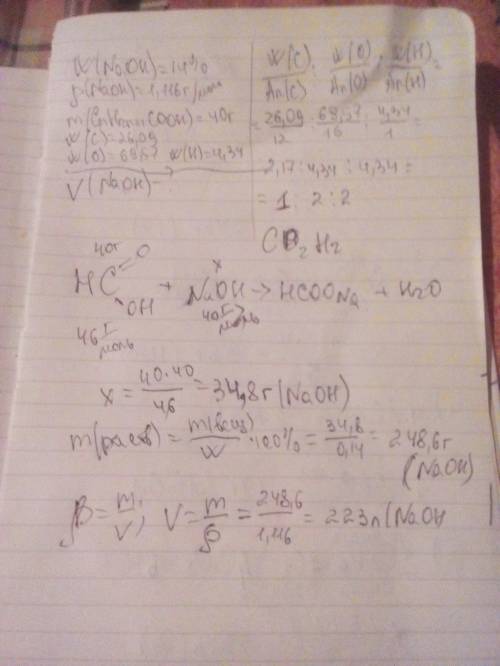 W(NaOH)=14%
ρ(NaOH)=1,116г/
m(CnH2n+1COOH)=40г
W(C)=26,09
W(O)=69,57 W(H)=4,34
V(NaOH)-?
W(C)/Ar(C) : W(O)/Ar(O) : W(H)/Ar(H) =
= 26,09/12 : 69,57/16 : 4,34/1 =
2,17 : 4,34 : 4,34 =
= 1 : 2 : 2
CO2H2
40г x
HC=O OH + NaOH → HCOONa + H2O
46 г/моль 40 г/моль
x = 40·40/46 = 34,8г (NaOH)
m(раств) = m(вещ)/W · 100% = 34,8/0,14 = 248,6г
(NaOH)
ρ = m/V, V = m/ρ = 248,6/1,116 = 223л(NaOH